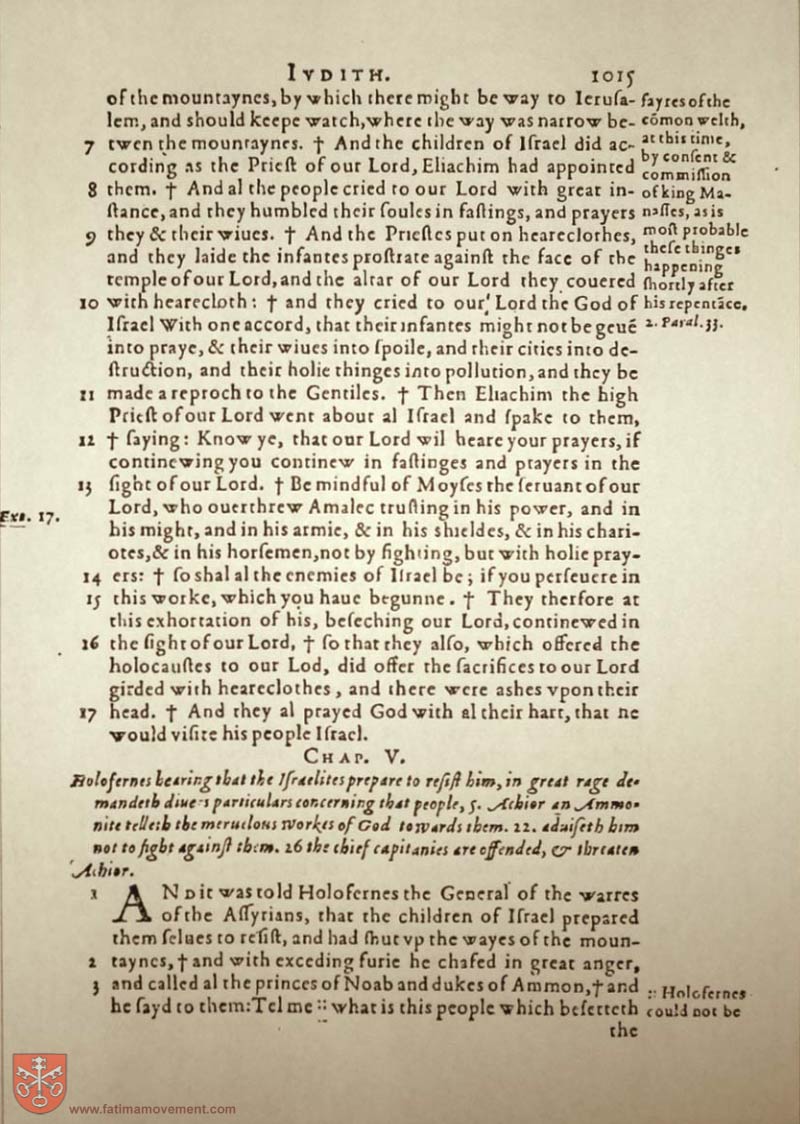 IVDITH. 1015
of the mountaynes, by which there might be way to Ierusa-
lem, and should keepe watch, where the way was narrow be-
7 twen the mountaynes. † And the children of Iſrael did ac-
cording as the Prieſt of our Lord, Eliachim had appointed
8 them. † And al the people cried to our Lord with great in-
ſtance, and they humbled their ſoules in faſtings, and prayers
9 they & their wiues. † And the Prieſtes put on heareclothes,
and they laide the infantes proſtrate againſt the face of the
temple of our Lord, and the altar of our Lord they couered
10 with hearecloth: † and they cried to our Lord the God of
Iſrael With one accord, that their infantes might not be geuē
into praye, & their wiues into ſpoile, and their cities into de-
ſtruction, and their holie thinges into pollution, and they be
11 made a reproch to the Gentiles. † Then Eliachim the high
Prieſt of our Lord went about al Iſrael and ſpake to them,
12 † ſaying: Know ye, that our Lord wil heare your prayers, if
continewing you continew in faſtinges and prayers in the
13 ſight of our Lord. † Be mindful of Moyſes the ſeruant of our
Lord, who ouerthrew Amalec truſting in his power, and in
his might, and in his armie, & in his shieldes, & in his chari-
otes, & in his horſemen, not by fighting, but with holie pray-
14 ers: † ſo shal al the enemies of Iſrael be; if you perſeuere in
15 this worke, which you haue begunne. † They therfore at
this exhortation of his, beſeching our Lord, continewed in
16 the ſight of our Lord, † ſo that they alſo, which offered the
holocauſtes to our Lod, did offer the ſacrifices to our Lord
girded with heareclothes, and there were ashes vpon their
17 head. † And they al prayed God with al their hart, that he
would viſite his people Iſrael.
ſayres of the
cōmon welth,
at this time,
by conſent &
commiſſion
of king Ma-
naſſes, as is
moſt probable
theſe thinges
happening
ſhortly after
his repentāce.
2. Paral. 33.
Exo. 17.
CHAP. V.
Holofernes hearing that the Iſraelites prepare to reſiſt him, in great rage de-
mandeth diuers particulars concerning that people, 5. Achior an Ammo-
nite telleth the meruelous workes of God towards them. 22. aduiſeth him
not to fight againſt them. 26 the chief capitanies are offended, & threaten
Achior.
1 AND it was told Holofernes the General of the warres
of the Aſſyrians, that the children of Iſrael prepared
them ſelues to reſiſt, and had ſhut vp the wayes of the moun-
2 taynes, † and with exceding furie he chafed in great anger,
3 and called al the princes of Noab and dukes of Ammon, † and
he ſayd to them: Tel me :: what is this people which beſetteth
the
:: Holofernes
could not be
www.fatimamovement.com